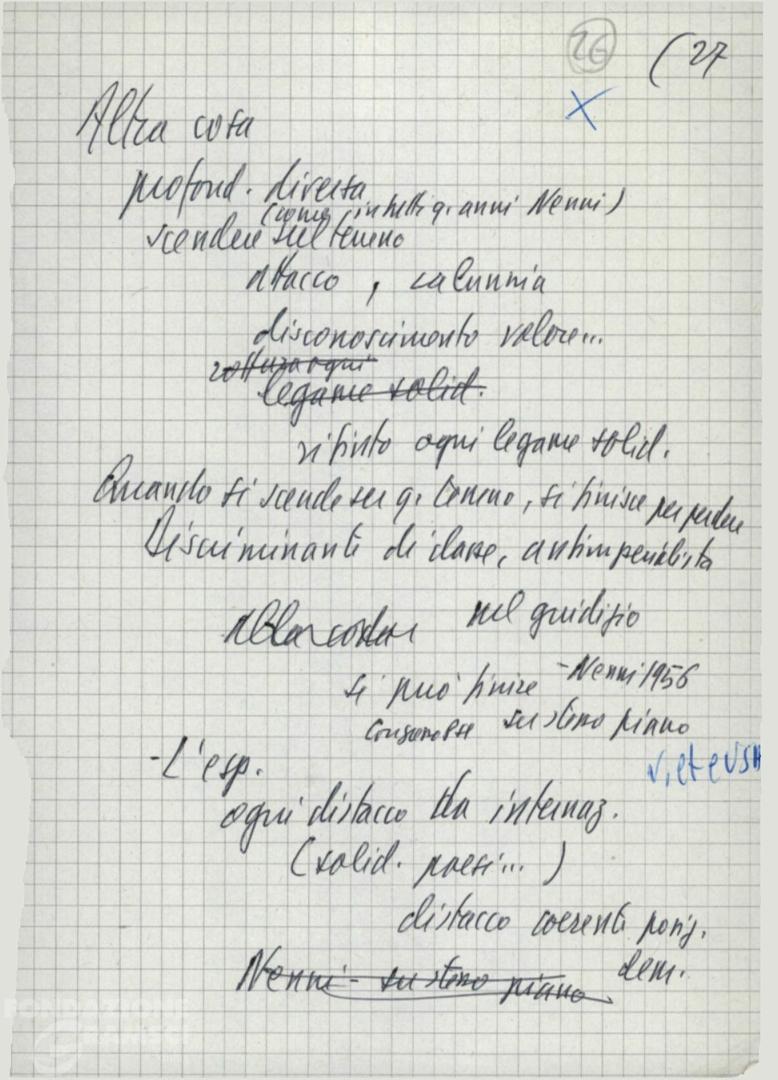 26 (27
X
Altra cosa
profond. diversa
(come intellig. anni Nenni)
scendere sul terreno
attacco, calunnia
disconoscimento valore...
rottura ogni
legame solid.
rifiuto ogni legame solid.
Quando si scende su q. terreno, si finisce per perdere
Discriminanti di classe, antimperialista
nel giudizio
si può finire - Nenni 1956
su stesso piano
V. et e USA
- L'esp.
ogni distacco da internaz.
(solid. paesi...)
distacco coerenti posiz.
dem.
Nenni - su stesso piano
FONDAZIONE